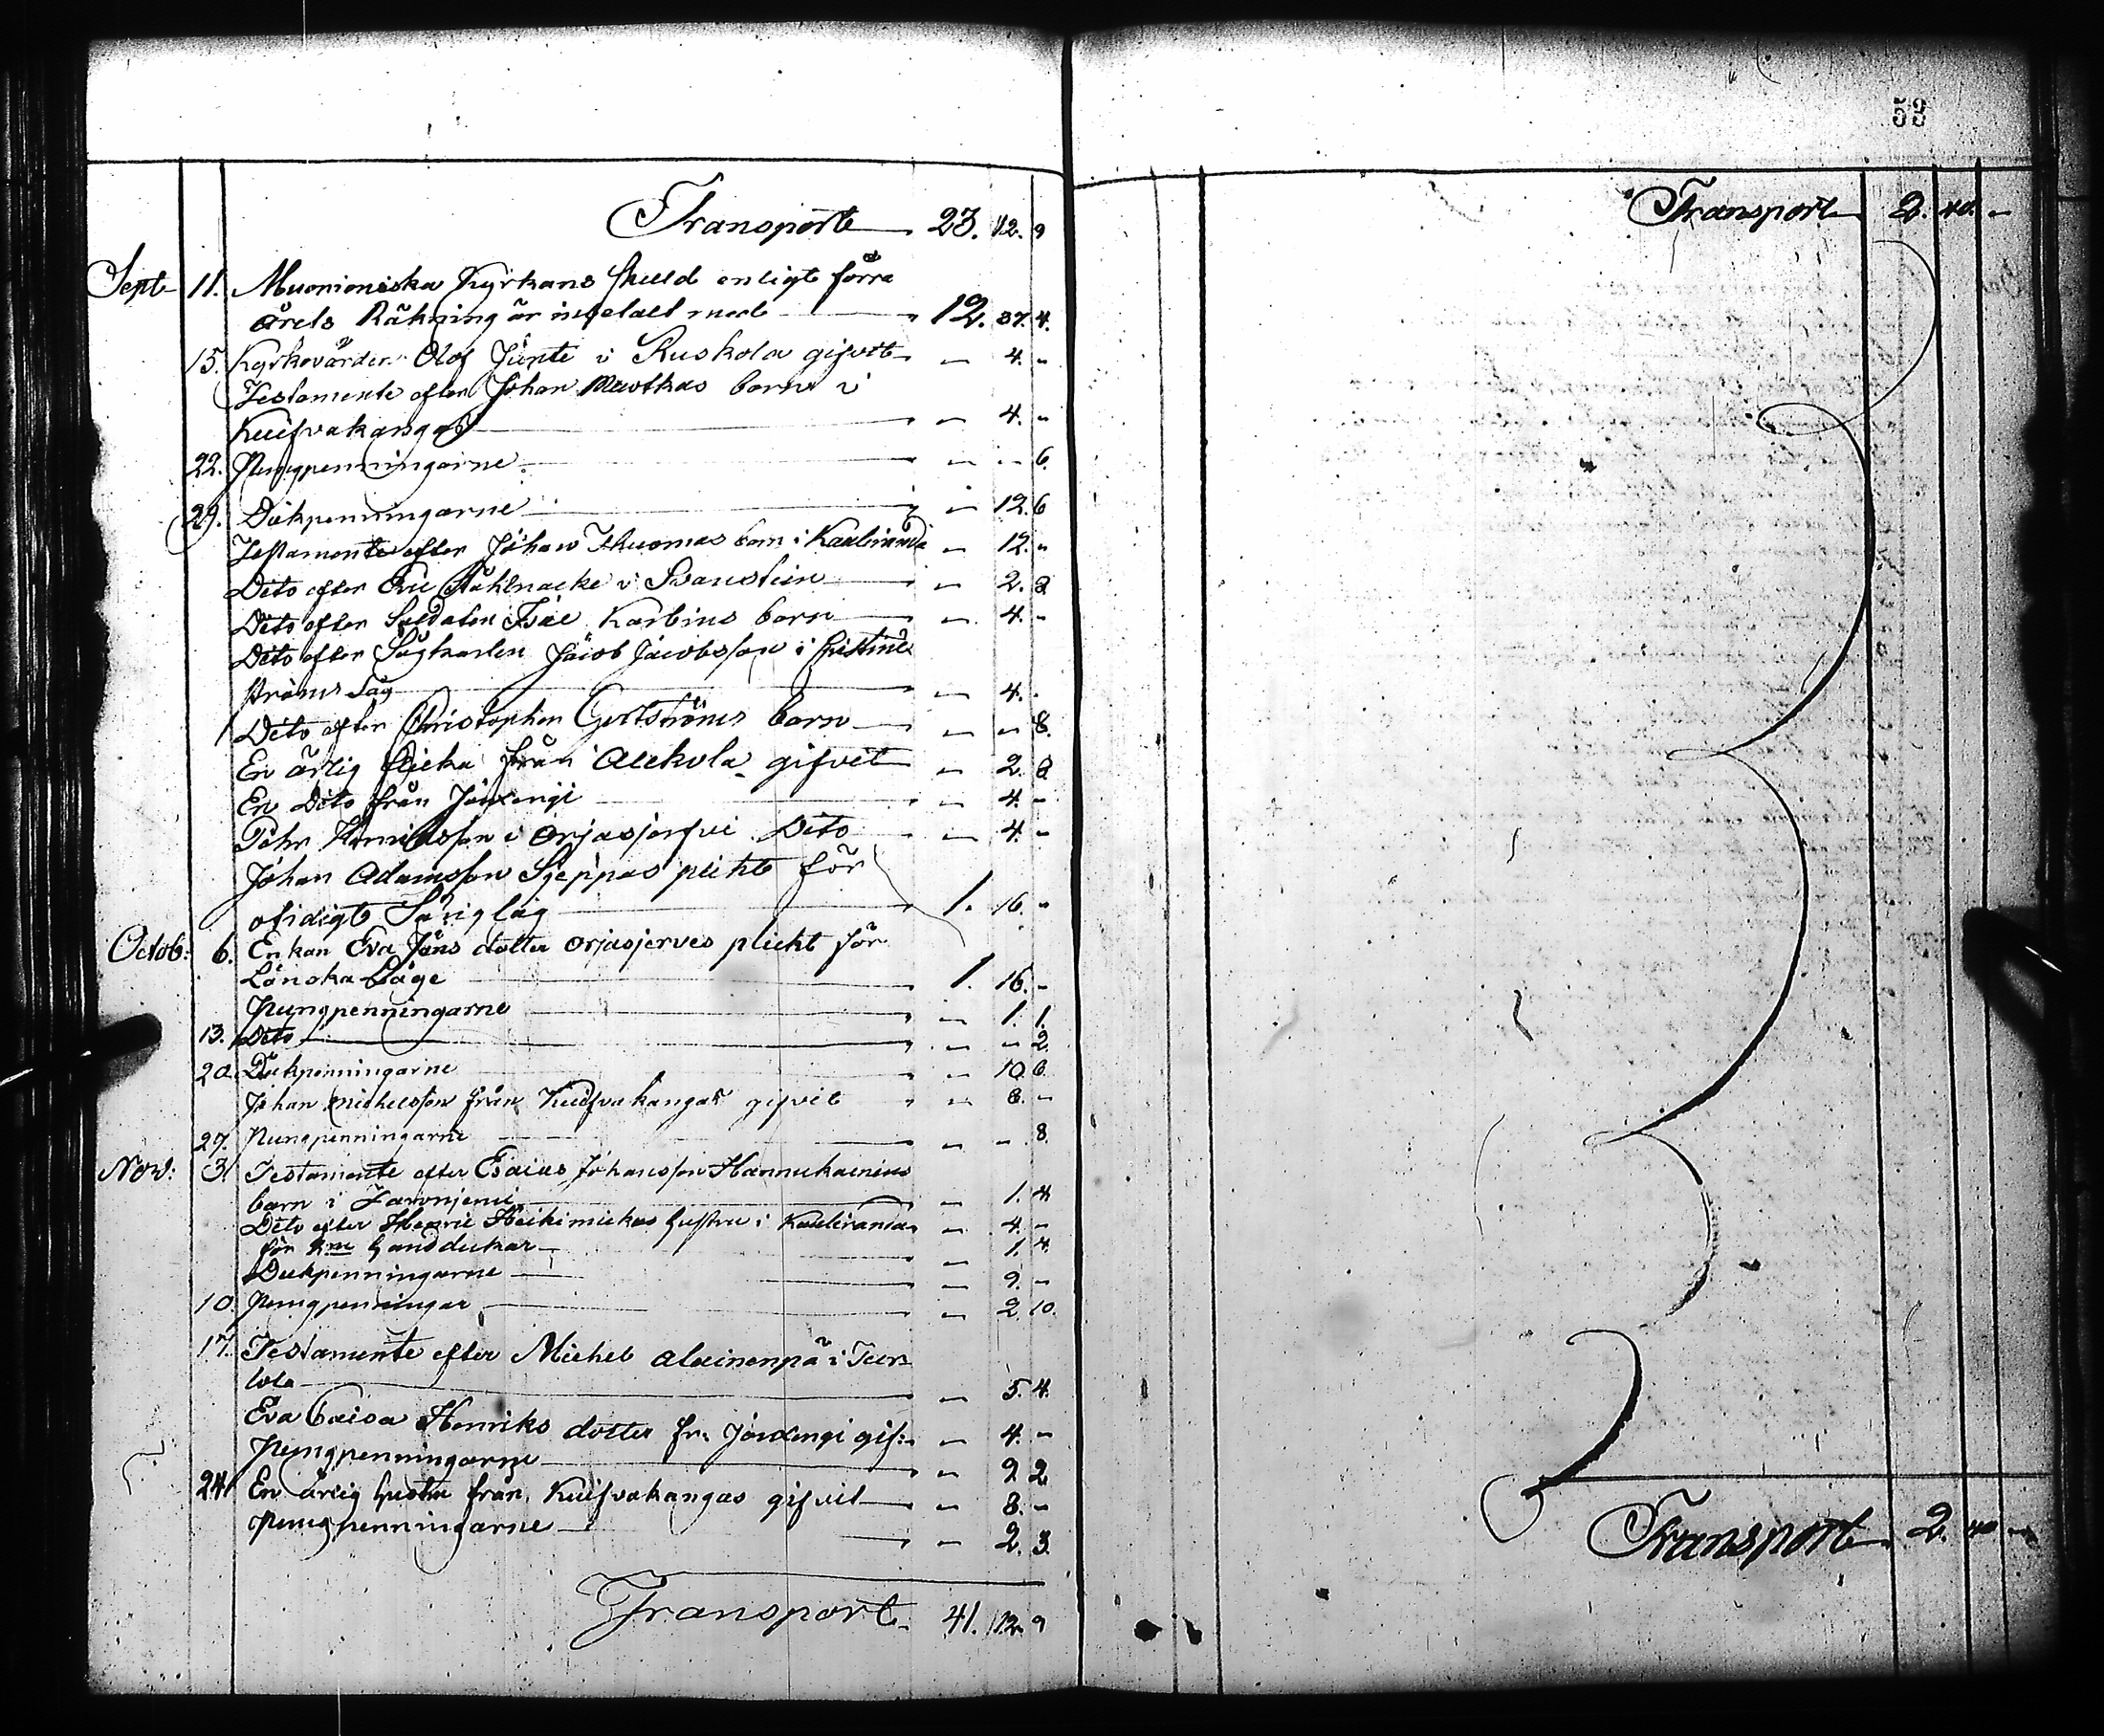 Transport 23. 12. 9
Sept 11. Muonioniska Kyrkans skuld enligt förra
årets Räkning är inbetalt med 12. 37. 4.
15. Kyrkovärden Olof Junte i Ruskola gifvit — 4. —
Testamente efter Johan barn i
Kuifvakangas — 4. —
22. Pungpenningarne — — 6.
29. Dukpenningarne — 12. 6
Testamente efter Johan Thuomas barn i Kauliranda — 12. —
Dito efter Eric Stålnacke i Svanstein — 2. 8
Dito efter Soldaten Isac Karbins barn — 4. —
Dito efter Sågkarlen Jacob Jacobsson i Christine
ströms Såg — 4. —
Dito efter Christopher Gertströms barn — — 8.
En ärlig flicka från Alckula gifvit — 2. 8
En Dito från Jouxengi — 4. —
Pehr Henriksson i Orjasjerfvi Dito — 4. —
Johan Adamsson Sjeppas plikt för
otidigt Sänglag 1. 16. —
Octob: 6. Enkan Eva Jöns dotter Orjasjerves plickt för
Lönska Läge 1. 16. —
Pungpenningarne — 1. 1.
13. Dito — — 2.
20. Dukpenningarne — 10. 6.
Johan Michelsson från Kuifvakangas gifvit — 8. —
27. Pungpenningarne — — 8.
Nov: 3. Testamente efter Esaias Johansson Hannukainens
barn i — 1. 4
Dito efter Henric Heikimickas hustru i Kauliranda — 4. —
för handdukar — 1. 4.
Dukpenningarne — 9. —
10. Pungpenningar — 2. 10.
17. Testamente efter Michel Alainenpä i Turt
tola — 5. 4.
Eva Caisa Henriks dotter fr. Jouxengi gif: — 4. —
Pungpenningarne — 2. 2
24. En ärlig hustru från Kuifvakangas gifvit — 8. —
Pungpenningarne — 2. 3.
Transport 41. 12. 9
53
Transport 2. 40. —
Transport 2. 40 —